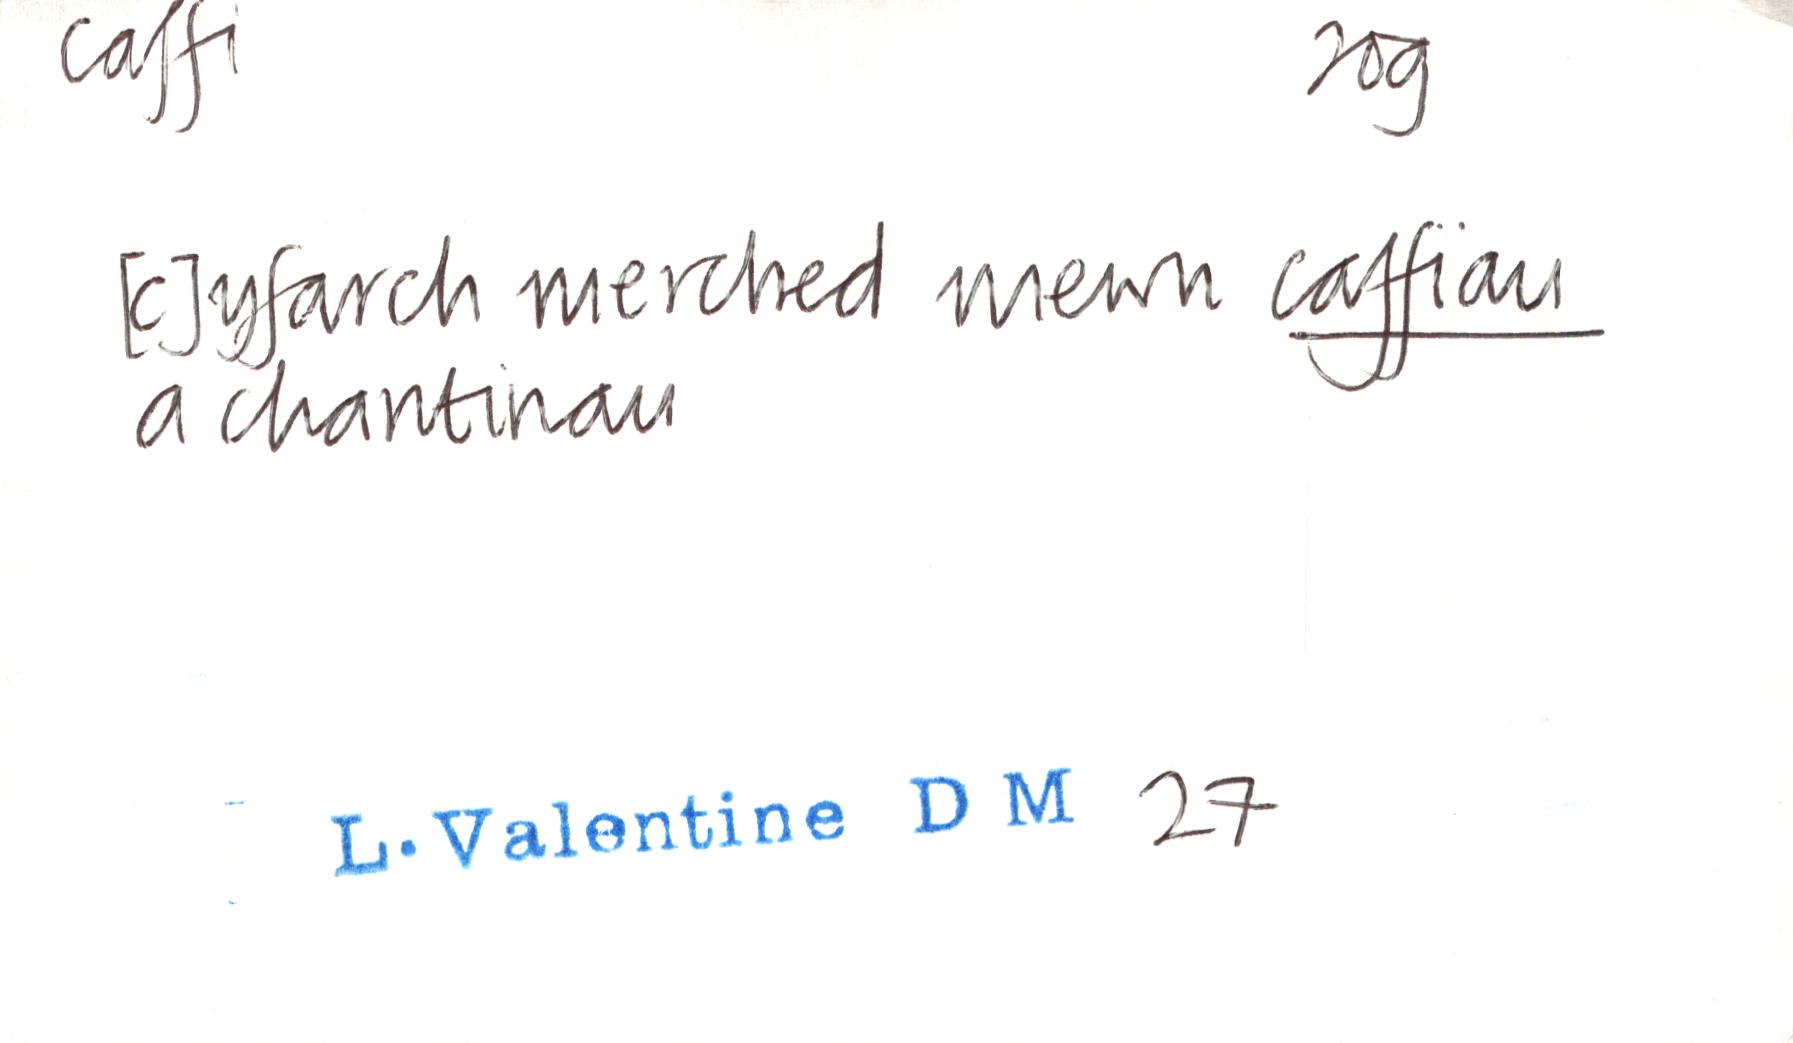 caffi 20g
[c]yfarch merched mewn caffiau
a chantinau
L. Valentine D M 27